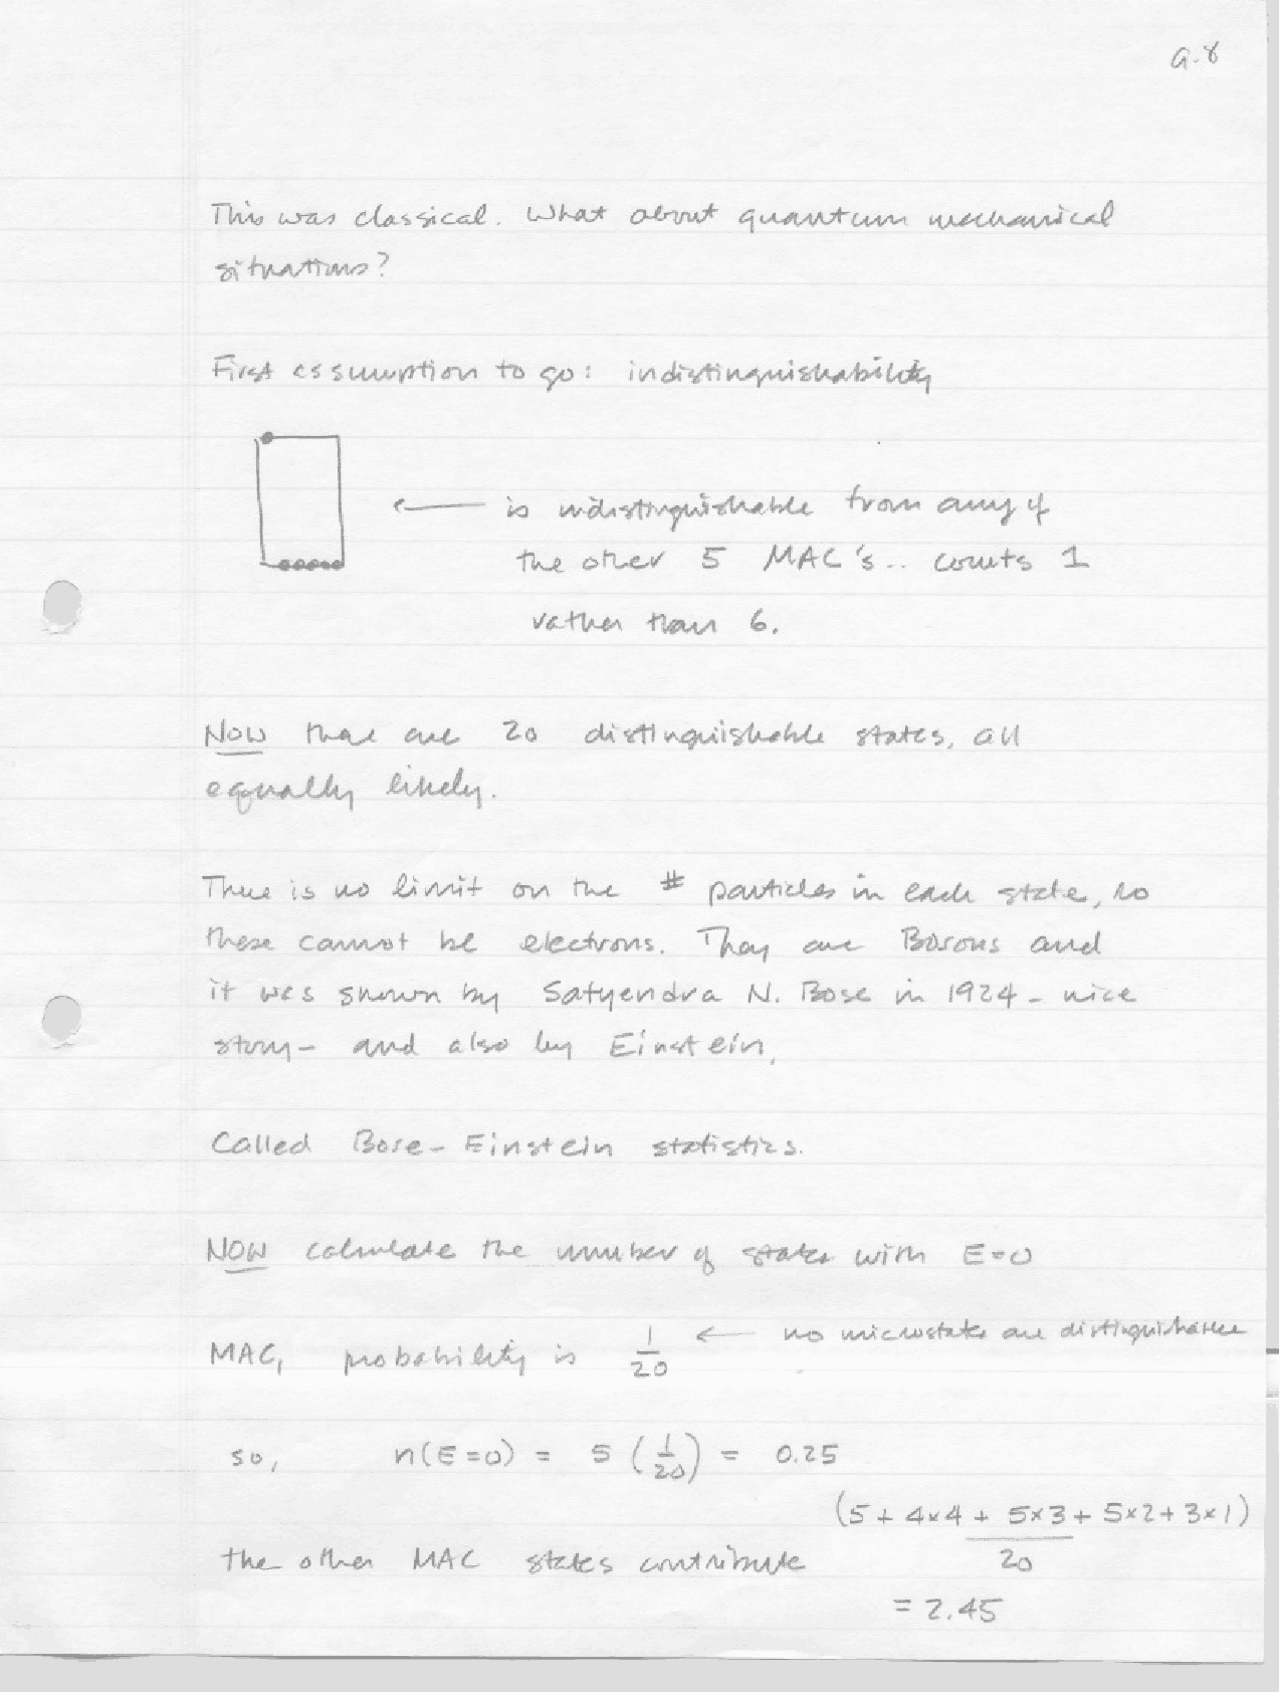 G.8
This was classical. What about quantum mechanical
situations?
First assumption to go: indistinguishability
← is indistinguishable from any of
the other 5 MAC's.. counts 1
rather than 6.
NOW there are 20 distinguishable states, all
equally likely.
There is no limit on the # particles in each state, so
these cannot be electrons. They are Bosons and
it was shown by Satyendra N. Bose in 1924 - nice
story - and also by Einstein.
Called Bose-Einstein statistics.
NOW calculate the number of states with E=0
MAC, probability is 1/20 ← no microstates are distinguishable
so, n(E=0) = 5 (1/20) = 0.25
(5 + 4×4 + 5×3 + 5×2 + 3×1)
the other MAC states contribute 20
= 2.45